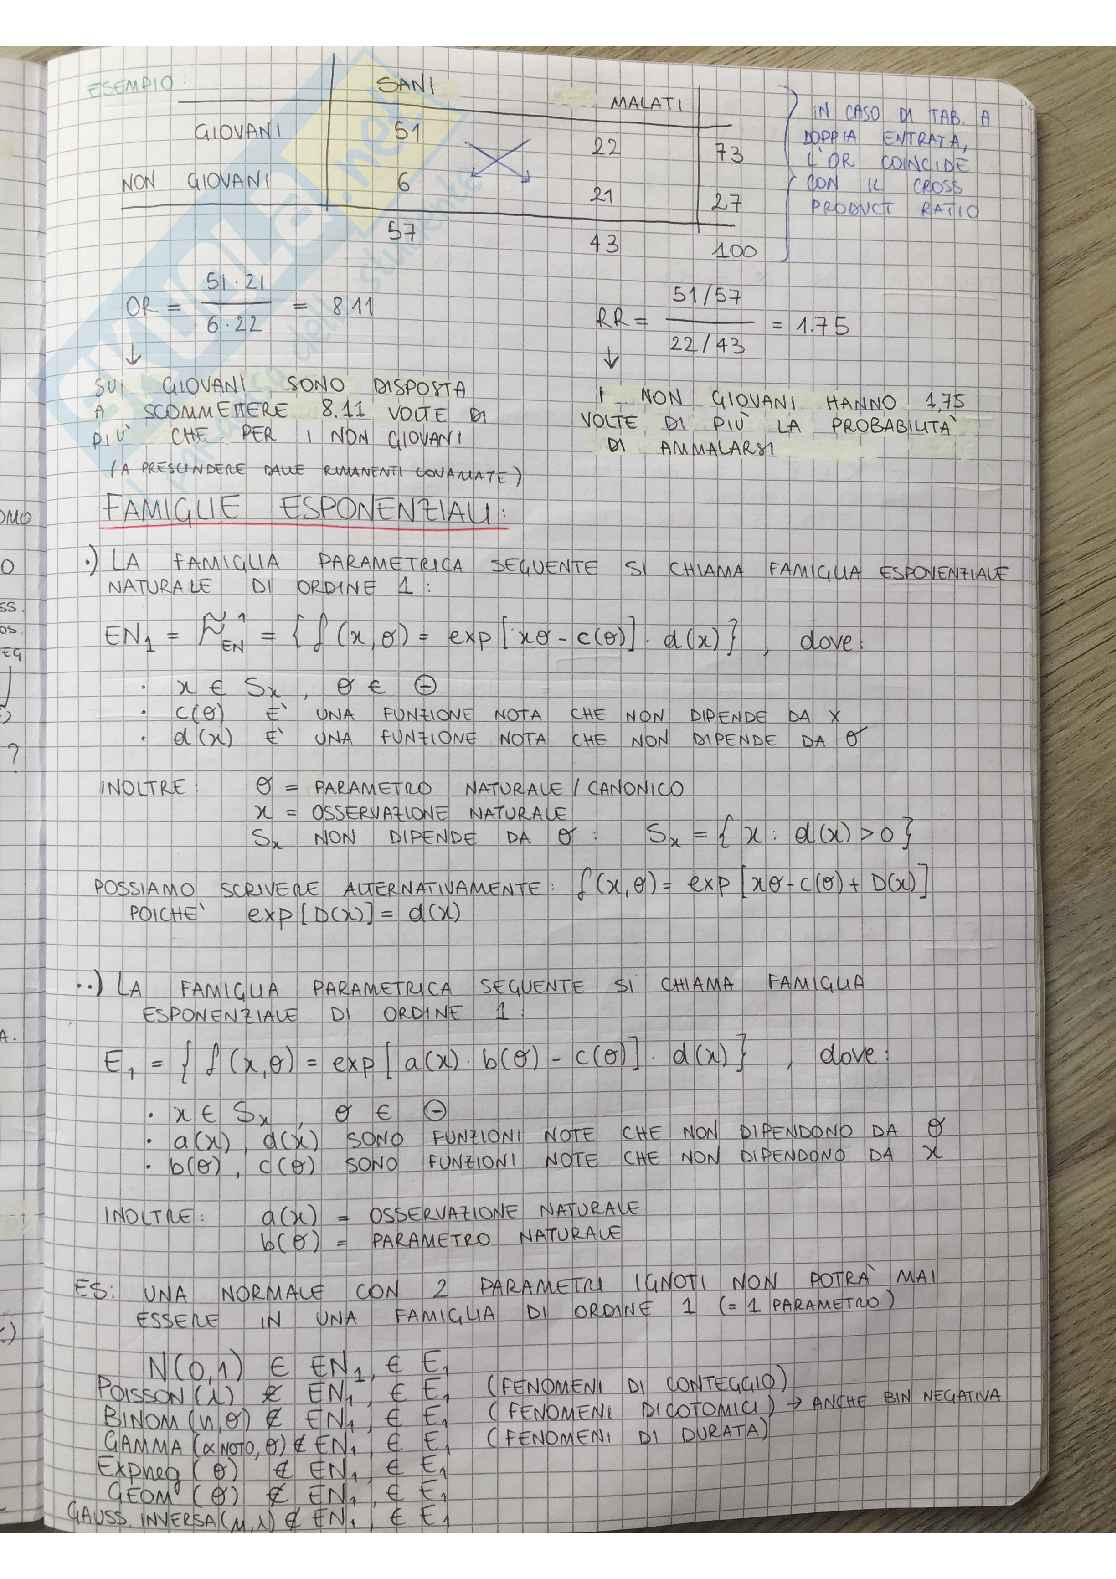 ESEMPIO:
SANI
MALATI
GIOVANI 51 22 73
NON GIOVANI 6 21 27
57 43 100
IN CASO DI TAB. A
DOPPIA ENTRATA,
L'OR COINCIDE
CON IL CROSS
PRODUCT RATIO
OR = 51·21 / 6·22 = 8.11
RR = 51/57 / 22/43 = 1.75
↓
SUI GIOVANI SONO DISPOSTA
A SCOMMETTERE 8.11 VOLTE DI
PIÙ CHE PER I NON GIOVANI
(A PRESCINDERE DALLE RIMANENTI COVARIATE)
↓
I NON GIOVANI HANNO 1,75
VOLTE DI PIÙ LA PROBABILITÀ
DI AMMALARSI
FAMIGLIE ESPONENZIALI:
·) LA FAMIGLIA PARAMETRICA SEGUENTE SI CHIAMA FAMIGLIA ESPONENZIALE
NATURALE DI ORDINE 1:
EN₁ = 𝓕¹_EN = { f(x,θ) = exp[xθ - c(θ)] · d(x) } , dove:
· x ∈ Sx , θ ∈ Θ
· c(θ) E' UNA FUNZIONE NOTA CHE NON DIPENDE DA X
· d(x) E' UNA FUNZIONE NOTA CHE NON DIPENDE DA θ
INOLTRE: θ = PARAMETRO NATURALE / CANONICO
x = OSSERVAZIONE NATURALE
Sx NON DIPENDE DA θ : Sx = { x : d(x) > 0 }
POSSIAMO SCRIVERE ALTERNATIVAMENTE: f(x,θ) = exp[xθ - c(θ) + D(x)]
POICHE' exp[D(x)] = d(x)
··) LA FAMIGLIA PARAMETRICA SEGUENTE SI CHIAMA FAMIGLIA
ESPONENZIALE DI ORDINE 1:
E₁ = { f(x,θ) = exp[a(x) · b(θ) - c(θ)] · d(x) } , dove:
· x ∈ Sx , θ ∈ Θ
· a(x), d(x) SONO FUNZIONI NOTE CHE NON DIPENDONO DA θ
· b(θ), c(θ) SONO FUNZIONI NOTE CHE NON DIPENDONO DA x
INOLTRE: a(x) = OSSERVAZIONE NATURALE
b(θ) = PARAMETRO NATURALE
ES: UNA NORMALE CON 2 PARAMETRI IGNOTI NON POTRA' MAI
ESSERE IN UNA FAMIGLIA DI ORDINE 1 (= 1 PARAMETRO)
N(0,1) ∈ EN₁, ∈ E₁
POISSON(λ) ∉ EN₁, ∈ E₁ (FENOMENI DI CONTEGGIO)
BINOM(n,θ) ∉ EN₁, ∈ E₁ (FENOMENI DICOTOMICI) → ANCHE BIN NEGATIVA
GAMMA(α NOTO, θ) ∉ EN₁, ∈ E₁ (FENOMENI DI DURATA)
Expneg(θ) ∉ EN₁, ∈ E₁
GEOM(θ) ∉ EN₁, ∈ E₁
GAUSS. INVERSA(μ,λ) ∉ EN₁, ∈ E₁